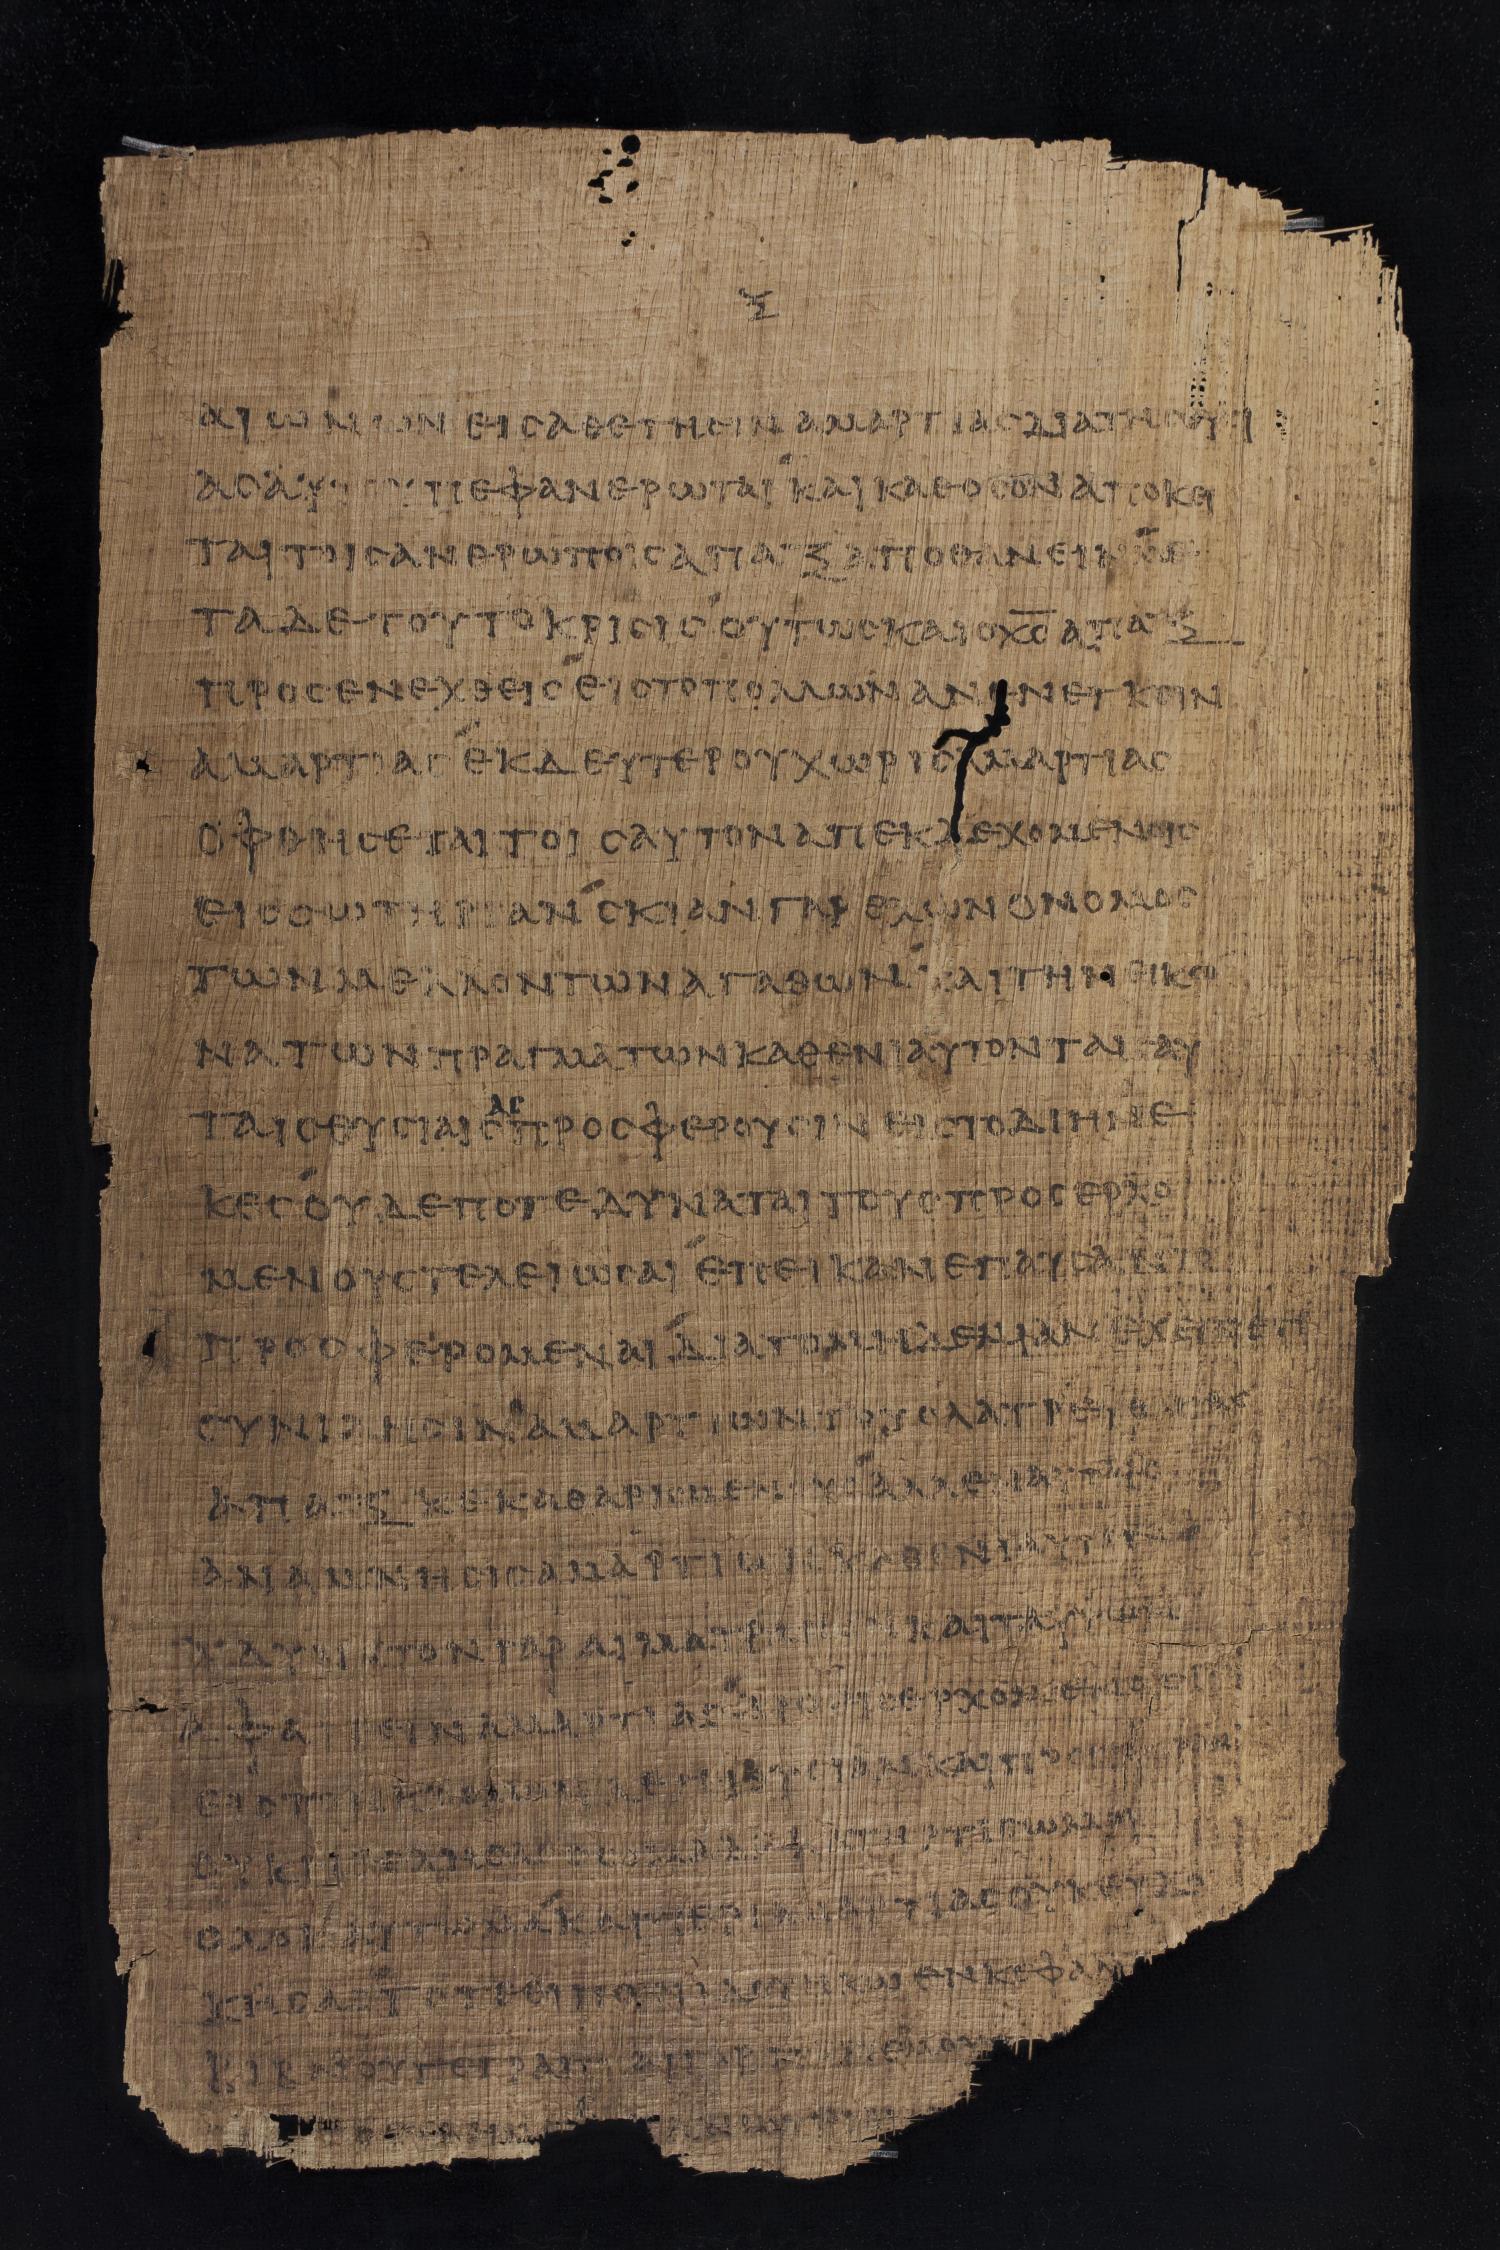 Ξ
ΑΙΩΝΩΝ ΕΙϹ ΑΘΕΤΗϹΙΝ ΑΜΑΡΤΙΑϹ ΔΙΑ ΤΗϹ ΘΥϹΙ
ΑϹ ΑΥΤΟΥ ΠΕΦΑΝΕΡΩΤΑΙ ΚΑΙ ΚΑΘ ΟϹΟΝ ΑΠΟΚΕΙ
ΤΑΙ ΤΟΙϹ ΑΝΘΡΩΠΟΙϹ ΑΠΑΞ ΑΠΟΘΑΝΕΙΝ ΜΕ
ΤΑ ΔΕ ΤΟΥΤΟ ΚΡΙϹΙϹ ΟΥΤΩϹ ΚΑΙ Ο Χ̅Ϲ̅ ΑΠΑΞ
ΠΡΟϹΕΝΕΧΘΕΙϹ ΕΙϹ ΤΟ ΠΟΛΛΩΝ ΑΝΕΝΕΓΚΕΙΝ
ΑΜΑΡΤΙΑϹ ΕΚ ΔΕΥΤΕΡΟΥ ΧΩΡΙϹ ΑΜΑΡΤΙΑϹ
ΟΦΘΗϹΕΤΑΙ ΤΟΙϹ ΑΥΤΟΝ ΑΠΕΚΔΕΧΟΜΕΝΟΙϹ
ΕΙϹ ϹΩΤΗΡΙΑΝ ϹΚΙΑΝ ΓΑΡ ΕΧΩΝ Ο ΝΟΜΟϹ
ΤΩΝ ΜΕΛΛΟΝΤΩΝ ΑΓΑΘΩΝ ΚΑΙ ΤΗΝ ΕΙΚΟ
ΝΑ ΤΩΝ ΠΡΑΓΜΑΤΩΝ ΚΑΘ ΕΝΙΑΥΤΟΝ ΤΑΙϹ ΑΥ
ΤΑΙϹ ΘΥϹΙΑΙϹ ΑϹ ΠΡΟϹΦΕΡΟΥϹΙΝ ΕΙϹ ΤΟ ΔΙΗΝΕ
ΚΕϹ ΟΥΔΕΠΟΤΕ ΔΥΝΑΤΑΙ ΤΟΥϹ ΠΡΟϹΕΡΧΟ
ΜΕΝΟΥϹ ΤΕΛΕΙΩϹΑΙ ΕΠΕΙ ΚΑΝ ΕΠΑΥϹΑΝΤΟ
ΠΡΟϹΦΕΡΟΜΕΝΑΙ ΔΙΑ ΤΟ ΜΗΔΕΜΙΑΝ ΕΧΕΙΝ ΕΤΙ
ϹΥΝΙΔΗϹΙΝ ΑΜΑΡΤΙΩΝ ΤΟΥϹ ΛΑΤΡΕΥΟΝΤΑϹ
ΑΠΑΞ ΚΕΚΑΘΑΡΙϹΜΕΝΟΥϹ ΑΛΛ ΕΝ ΑΥΤΑΙϹ
ΑΝΑΜΝΗϹΙϹ ΑΜΑΡΤΙΩΝ ΚΑΘ ΕΝΙΑΥΤΟΝ
ΑΔΥΝΑΤΟΝ ΓΑΡ ΑΙΜΑ ΤΡΑΓΩΝ ΚΑΙ ΤΑΥΡΩΝ
ΑΦΑΙΡΕΙΝ ΑΜΑΡΤΙΑϹ ΔΙΟ ΕΙϹΕΡΧΟΜΕΝΟϹ
ΕΙϹ ΤΟΝ ΚΟϹΜΟΝ ΛΕΓΕΙ ΘΥϹΙΑΝ ΚΑΙ ΠΡΟϹΦΟΡΑΝ
ΟΥΚ ΚΑΤΗΡΤΙϹΩ ΜΟΙ
ΟΛΟΚΑΥΤΩΜΑ ΚΑΙ ΠΕΡΙ ΑΜΑΡΤΙΑϹ ΟΥΚ ΕΥΔΟ
ΚΗϹΑϹ ΤΟΤΕ ΕΙΠΟΝ ΙΔΟΥ ΗΚΩ ΕΝ ΚΕΦΑΛΙ
ΓΕΓΡΑΠΤΑΙ ΠΕΡΙ ΕΜΟΥ